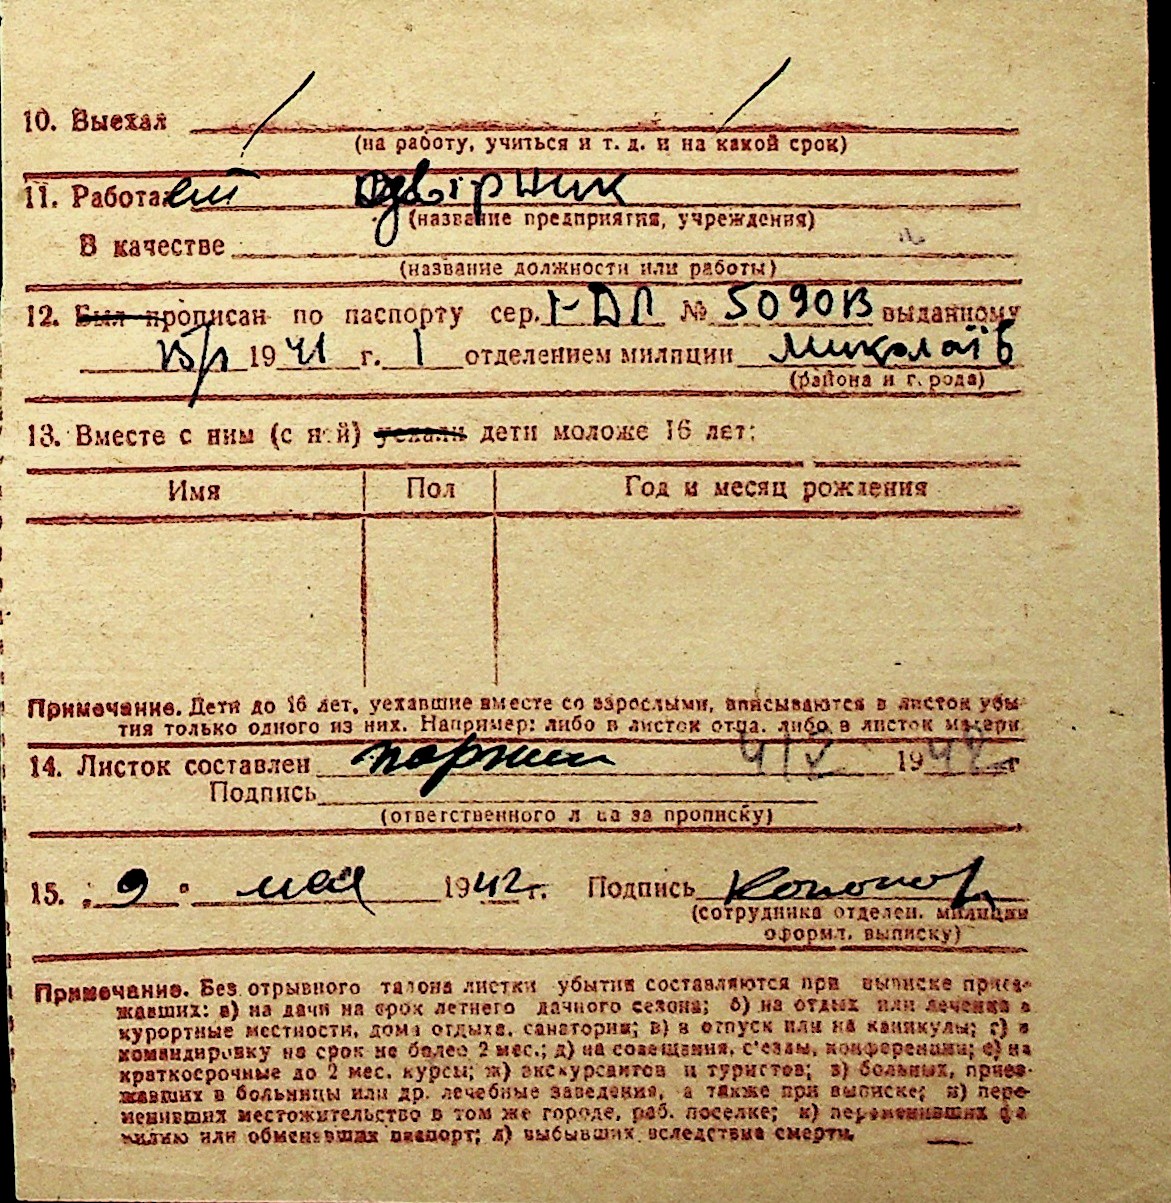 10. Выехал
(на работу, учиться и т. д. и на какой срок)
11. Работает двірник
(название предприятия, учреждения)
В качестве
(название должности или работы)
12. Был прописан по паспорту сер. № выданному
1941 г. 1 отделением милиции Миколаїв
(района и города)
13. Вместе с ним (с ней) уехали дети моложе 16 лет:
Имя Пол Год и месяц рождения
Примечание. Дети до 16 лет, уехавшие вместе со взрослыми, вписываются в листок убы-
тия только одного из них. Например: либо в листок отца, либо в листок матери
14. Листок составлен 4/V 1942 г
Подпись
(ответственного лица за прописку)
15. „9" мая 1942 г. Подпись
(сотрудника отделен. милиции
оформл. выписку)
Примечание. Без отрывного талона листки убытия составляются при выписке приез-
жавших: а) на дачи на срок летнего дачного сезона; б) на отдых или лечение в
курортные местности, дома отдыха, санатории; в) в отпуск или на каникулы; г) в
командировку на срок не более 2 мес.; д) на совещания, с'езды, конференции; е) на
краткосрочные до 2 мес. курсы; ж) экскурсантов и туристов; з) больных, приез-
жавших в больницы или др. лечебные заведения, а также при выписке; и) пере-
менивших местожительство в том же городе, раб. поселке; к) переменивших фа
милию или обменявших паспорт; л) выбывших вследствие смерти.